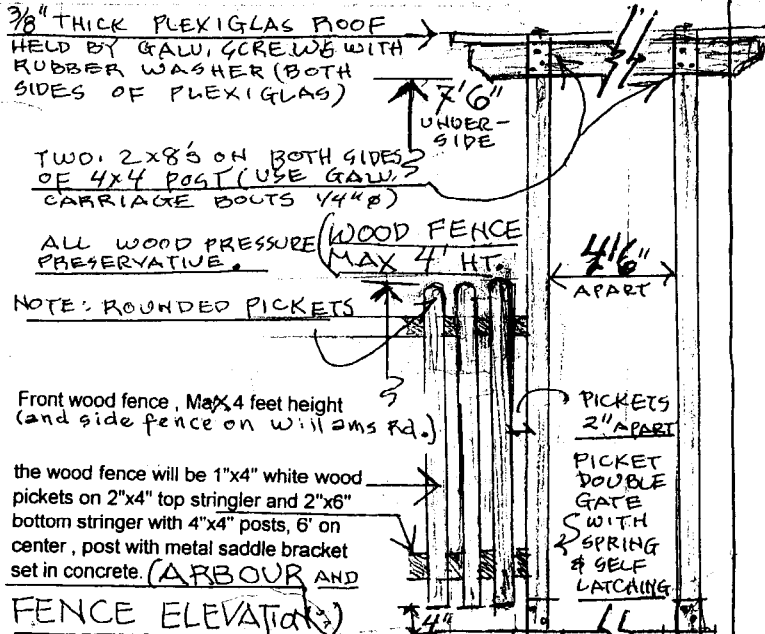 3/8" THICK PLEXIGLAS ROOF
HELD BY GALV. SCREWS WITH
RUBBER WASHER (BOTH
SIDES OF PLEXIGLAS)
7'6"
UNDER-
SIDE
TWO. 2x8's ON BOTH SIDES
OF 4x4 POST (USE GALV.
CARRIAGE BOLTS 1/4" ø)
ALL WOOD PRESSURE
PRESERVATIVE.
(WOOD FENCE
MAX 4' HT.
4'6"
APART
NOTE: ROUNDED PICKETS
Front wood fence , Max 4 feet height
(and side fence on Williams Rd.)
PICKETS
2" APART
the wood fence will be 1"x4" white wood
pickets on 2"x4" top stringler and 2"x6"
bottom stringer with 4"x4" posts, 6' on
center , post with metal saddle bracket
set in concrete. (ARBOUR AND
FENCE ELEVATION)
PICKET
DOUBLE
GATE
WITH
SPRING
& SELF
LATCHING
4"